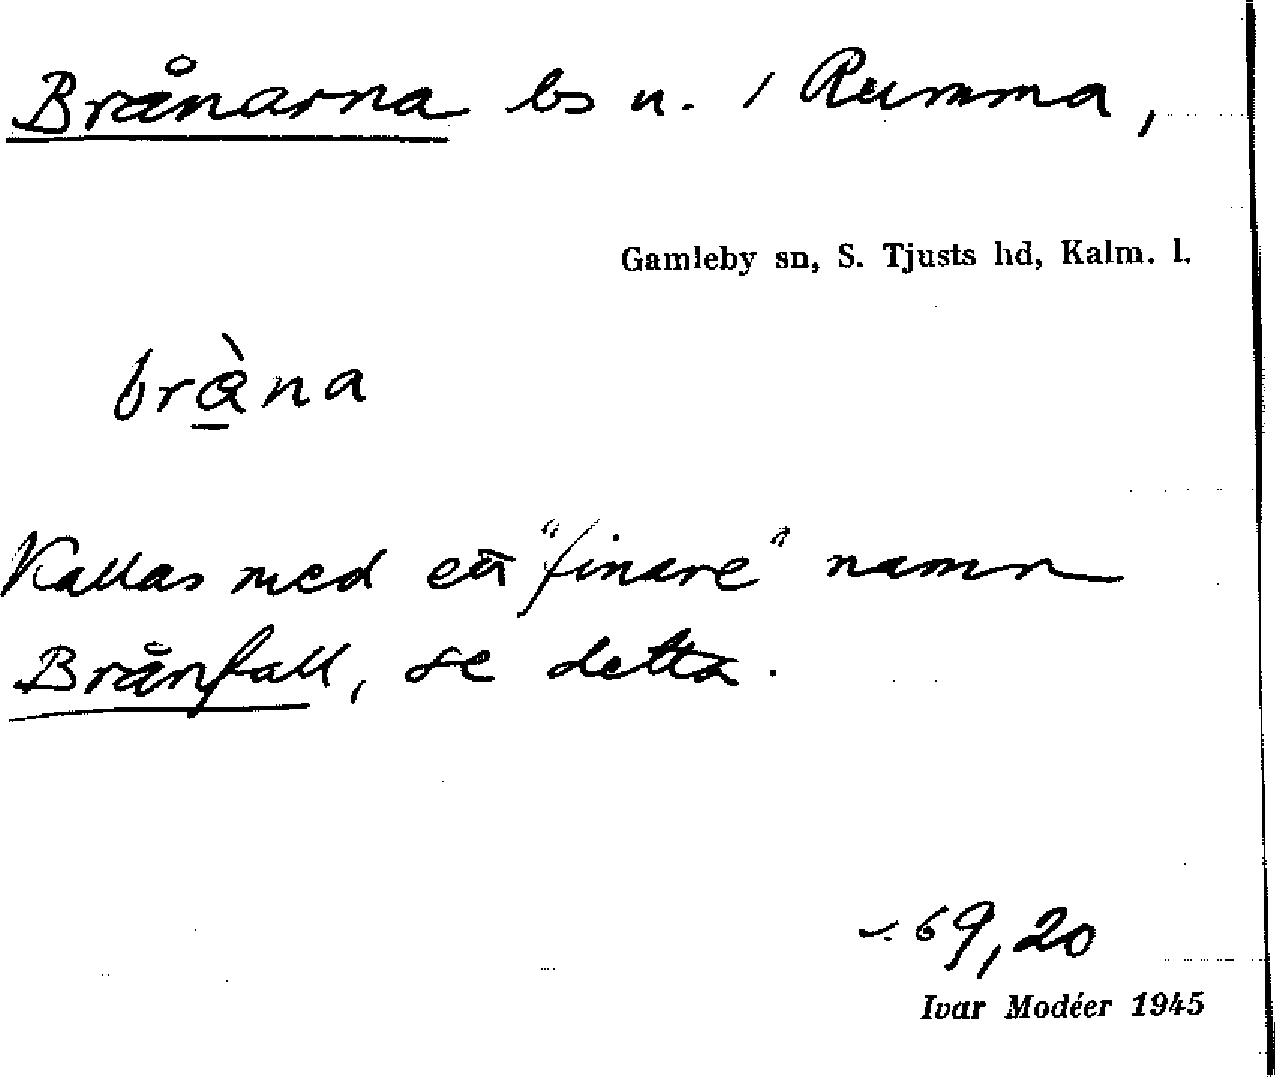 Brånarna bs u. / Rumma,
Gamleby sn, S. Tjusts hd, Kalm. l.
Kallas med ett "finare" namn
Brånfall, se detta.
69,20
Ivar Modéer 1945